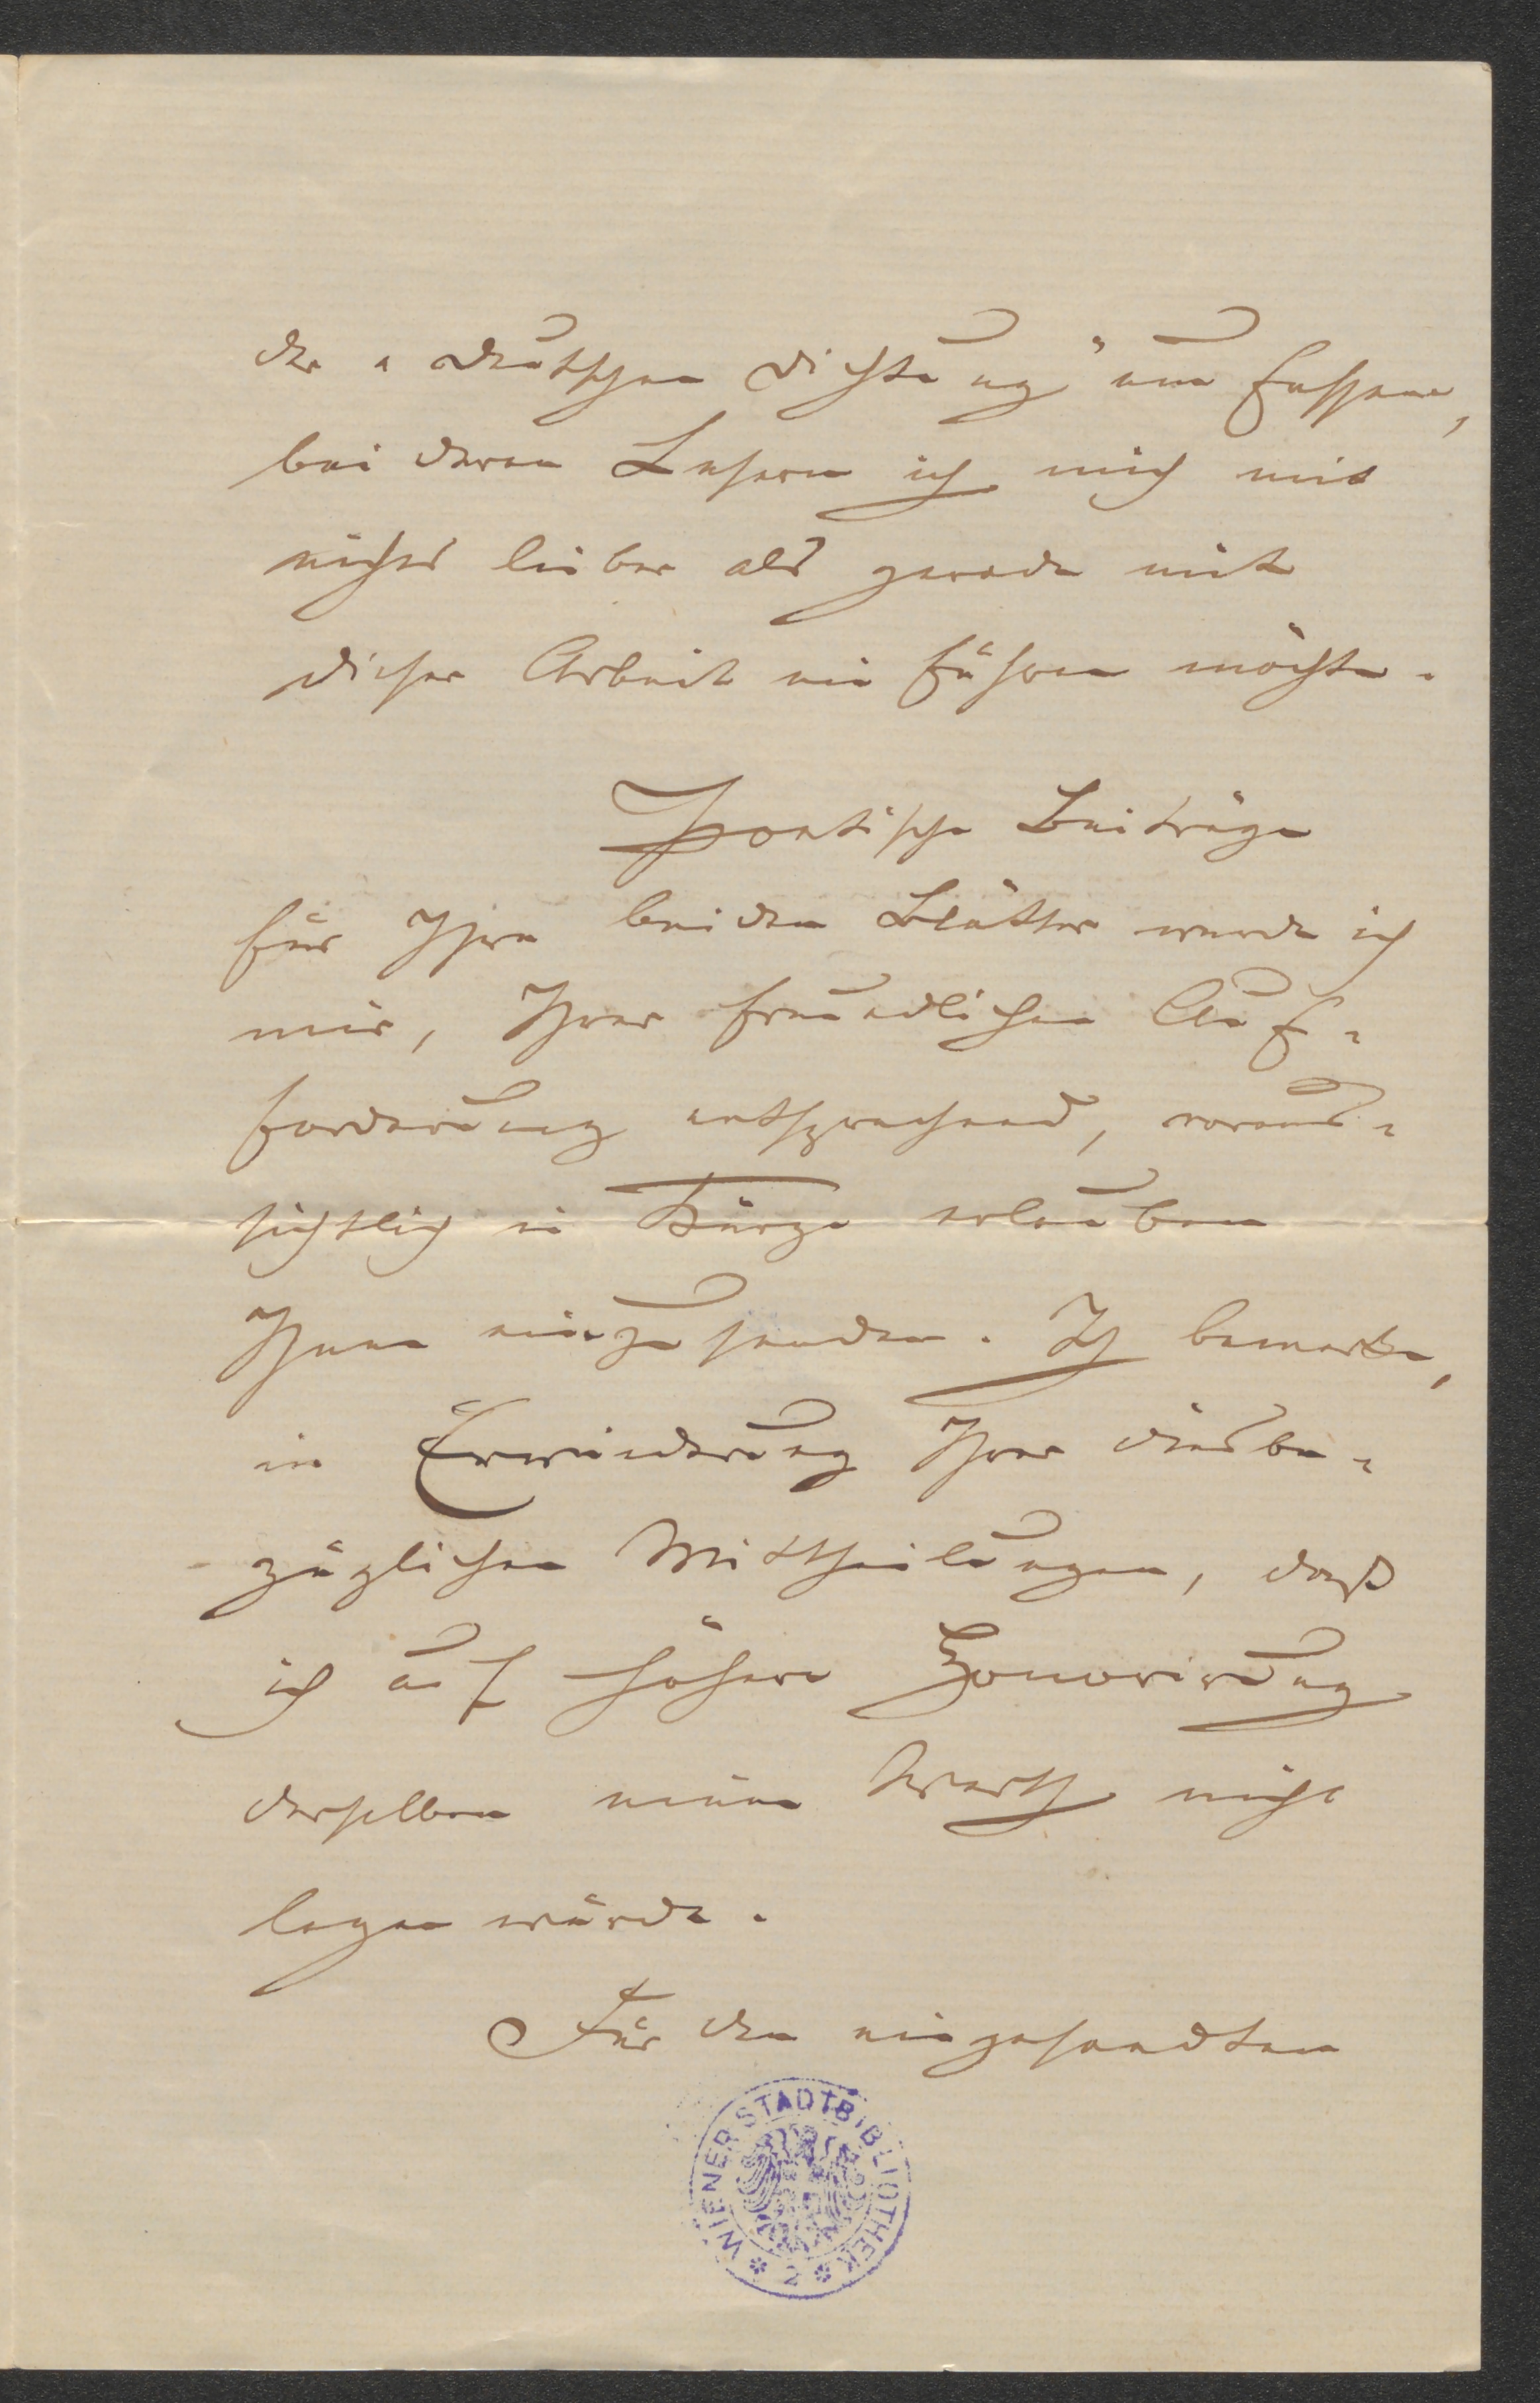 der „Deutschen Dichtung" um fassen,
bei deren Lesern ich mich mit
nichts lieber als gerade mit
dieser Arbeit ein führen möchte.
Poetische Beiträge
für Ihre beiden Blätter werde ich
mir, Ihrer freundlichen Auf-
forderung entsprechend, voraus-
sichtlich in Kürze erlauben
Ihnen einzusenden. Ich bemerke,
in Erwiederung Ihrer diesbe-
züglichen Mittheilungen, daß
ich auf höhere Honorirung
derselben einen Werth nicht
legen würde.
Für den eingesandten
WIENER STADTBIBLIOTHEK
* 2 *